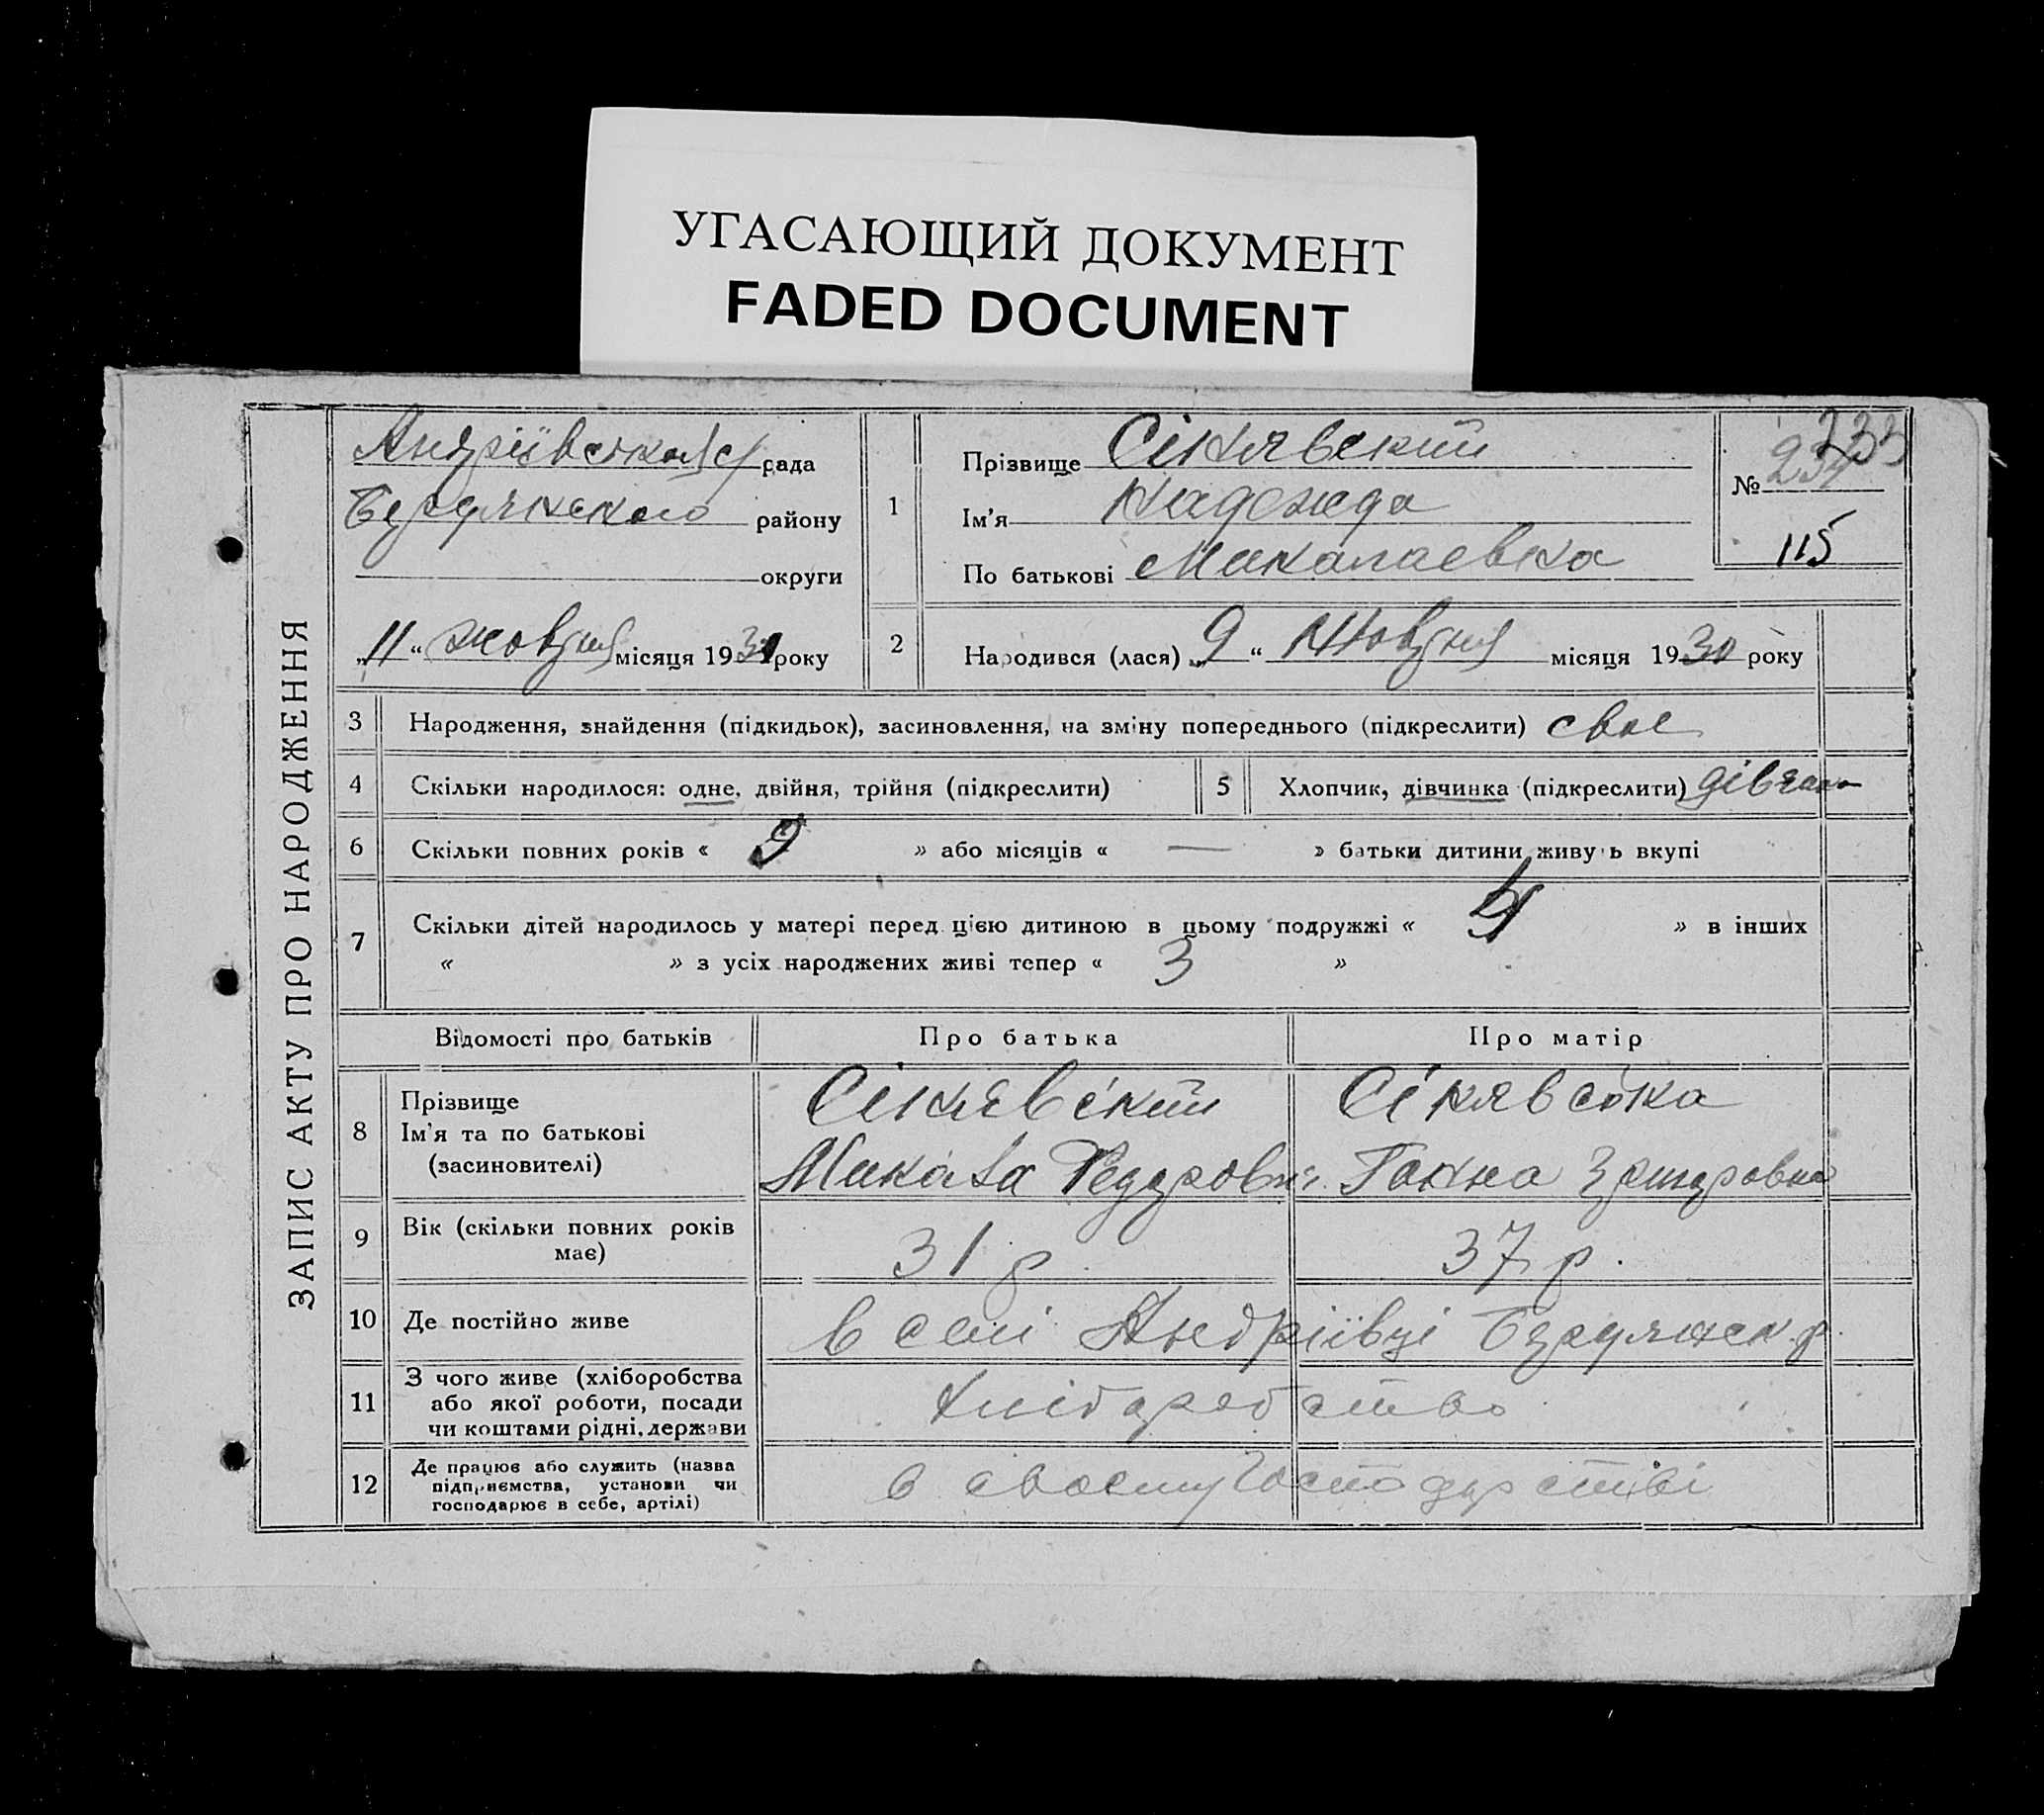 УГАСАЮЩИЙ ДОКУМЕНТ
FADED DOCUMENT
ЗАПИС АКТУ ПРО НАРОДЖЕННЯ
рада
району
округи
„11“ жовтня місяця 1930 року
1
Прізвище Сінявский
Ім'я Надежда
По батькові Миколаевна
№ 233
115
2
Народився (лася) „9“ Жовтня місяця 1930 року
3 Народження, знайдення (підкидьок), засиновлення, на зміну попереднього (підкреслити) своє
4 Скільки народилося: одне, двійня, трійня (підкреслити)
5 Хлопчик, дівчинка (підкреслити)
6 Скільки повних років « 9 » або місяців « — » батьки дитини живуть вкупі
7 Скільки дітей народилось у матері перед цією дитиною в цьому подружжі « 4 » в інших
« » з усіх народжених живі тепер « 3 »
Відомості про батьків
Про батька
Про матір
8 Прізвище
Ім'я та по батькові
(засиновителі)
Сінявский
Микола Федорович
Сінявська
Ганна
9 Вік (скільки повних років
має)
31 р
37 р.
10 Де постійно живе
в селі Андріівці Бердянск. р.
11 З чого живе (хліборобства
або якої роботи, посади
чи коштами рідні, держави
хліборобство
12 Де працює або служить (назва
підприємства, установи чи
господарює в себе, артілі)
в своему господарстві